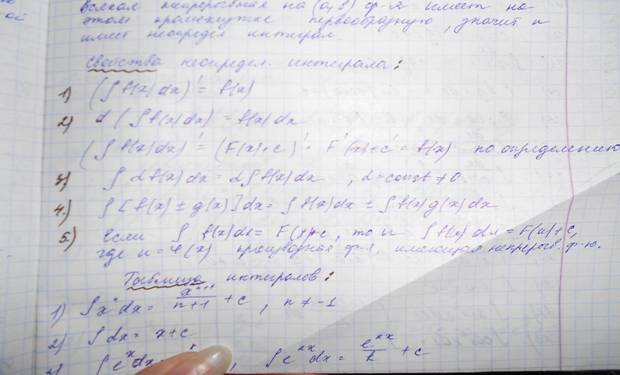 Всякая непрерывная на (a,b) ф-я имеет на
этом промежутке первообразную, значит и
имеет неопредел интеграл
Свойства неопредел. интеграла:
1) (∫ f(x)dx)' = f(x)
2) d(∫ f(x)dx) = f(x)dx
(∫ f(x)dx)' = (F(x)+c)' = F'(x)+c' = f(x) по определению
3) ∫ αf(x)dx = α∫ f(x)dx , α=const≠0
4.) ∫ [f(x) ± g(x)]dx = ∫ f(x)dx ± ∫ f(x)g(x)dx
5.) Если ∫ f(x)dx = F(x)+c, то и ∫ f(u)du = F(u)+c,
где u = φ(x) ф-я, имеющая непрерыв. ф-ю.
Таблица интегралов:
1) ∫ xⁿdx = xⁿ⁺¹/n+1 + c , n ≠ -1
2) ∫ dx = x+c
∫ eˣdx = , ∫ eᵏˣdx = eᵏˣ/k + c